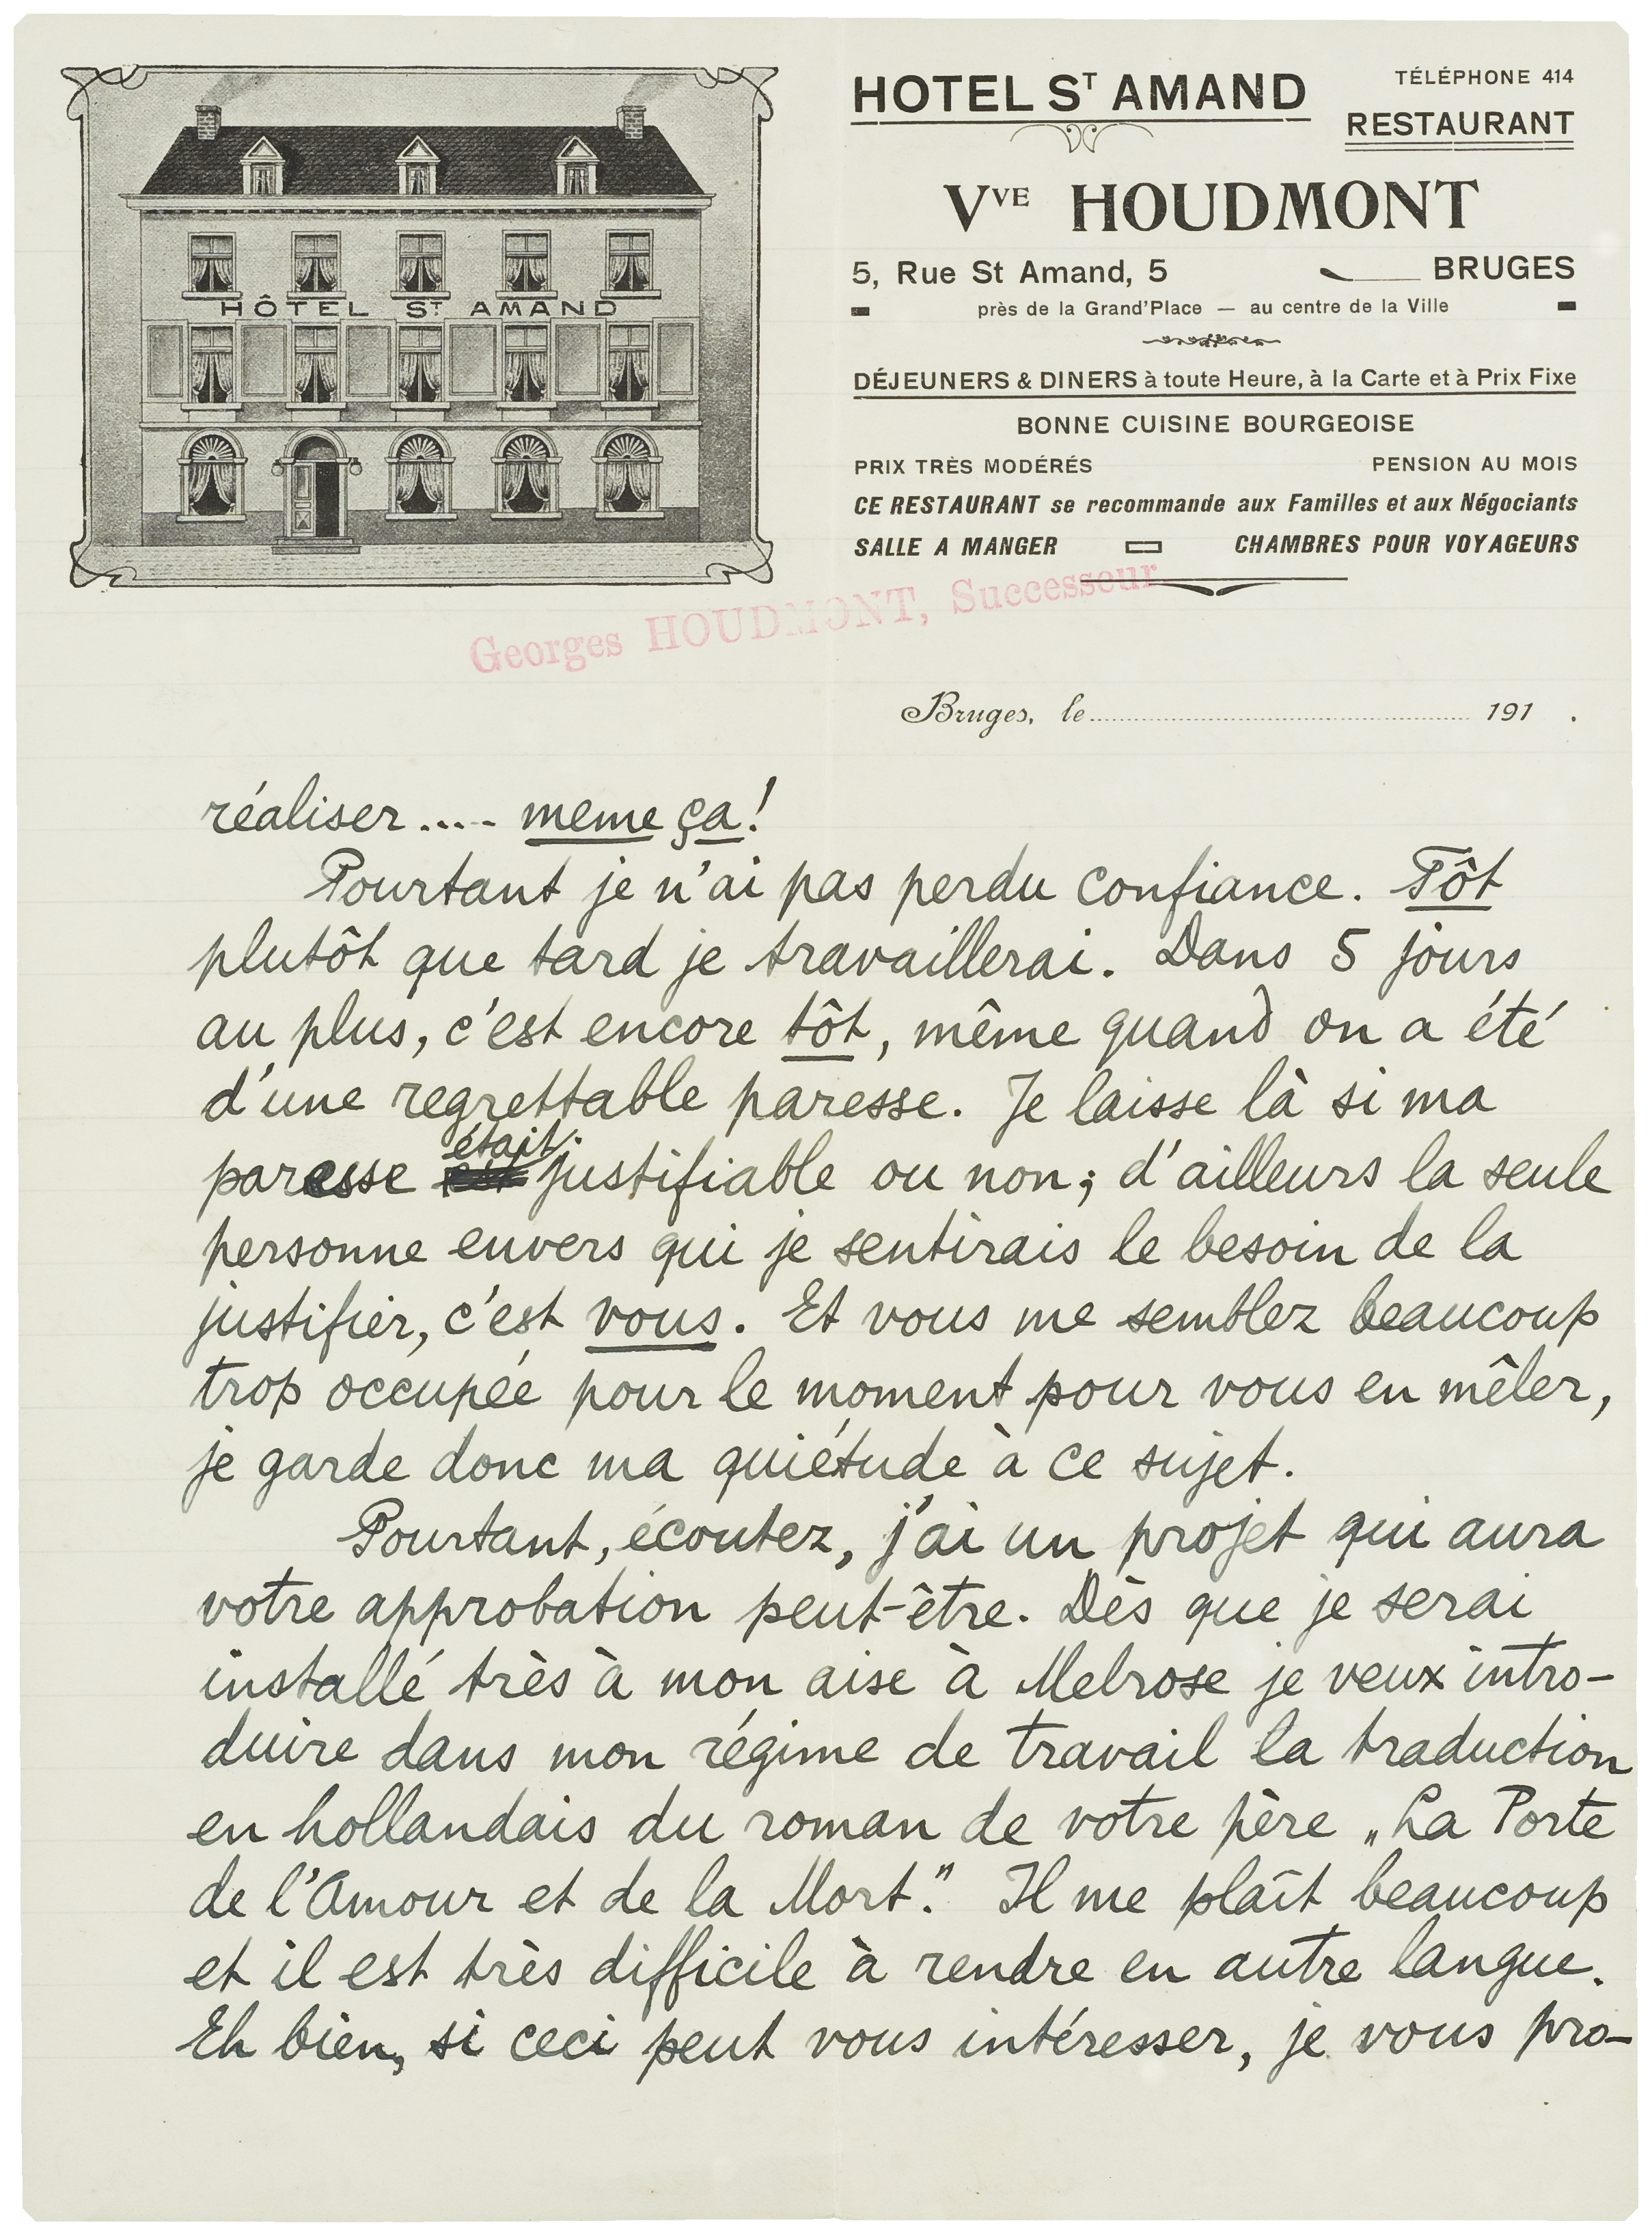 HÔTEL ST AMAND
HOTEL ST AMAND
TÉLÉPHONE 414
RESTAURANT
VVE HOUDMONT
5, Rue St Amand, 5 BRUGES
près de la Grand'Place — au centre de la Ville
DÉJEUNERS & DINERS à toute Heure, à la Carte et à Prix Fixe
BONNE CUISINE BOURGEOISE
PRIX TRÈS MODÉRÉS PENSION AU MOIS
CE RESTAURANT se recommande aux Familles et aux Négociants
SALLE A MANGER CHAMBRES POUR VOYAGEURS
Georges HOUDMONT, Successeur
Bruges, le 191 .
réaliser.... meme ça!
Pourtant je n'ai pas perdu confiance. Tôt
plutôt que tard je travaillerai. Dans 5 jours
au plus, c'est encore tôt, même quand on a été
d'une regrettable paresse. Je laisse là si ma
paresse était justifiable ou non; d'ailleurs la seule
personne envers qui je sentirais le besoin de la
justifier, c'est vous. Et vous me semblez beaucoup
trop occupée pour le moment pour vous en mêler,
je garde donc ma quiétude à ce sujet.
Pourtant, écoutez, j'ai un projet qui aura
votre approbation peut-être. Dès que je serai
installé très à mon aise à Melrose je veux intro-
duire dans mon régime de travail la traduction
en hollandais du roman de votre père „La Porte
de l'Amour et de la Mort." Il me plaît beaucoup
et il est très difficile à rendre en autre langue.
Eh bien, si ceci peut vous intéresser, je vous pro-